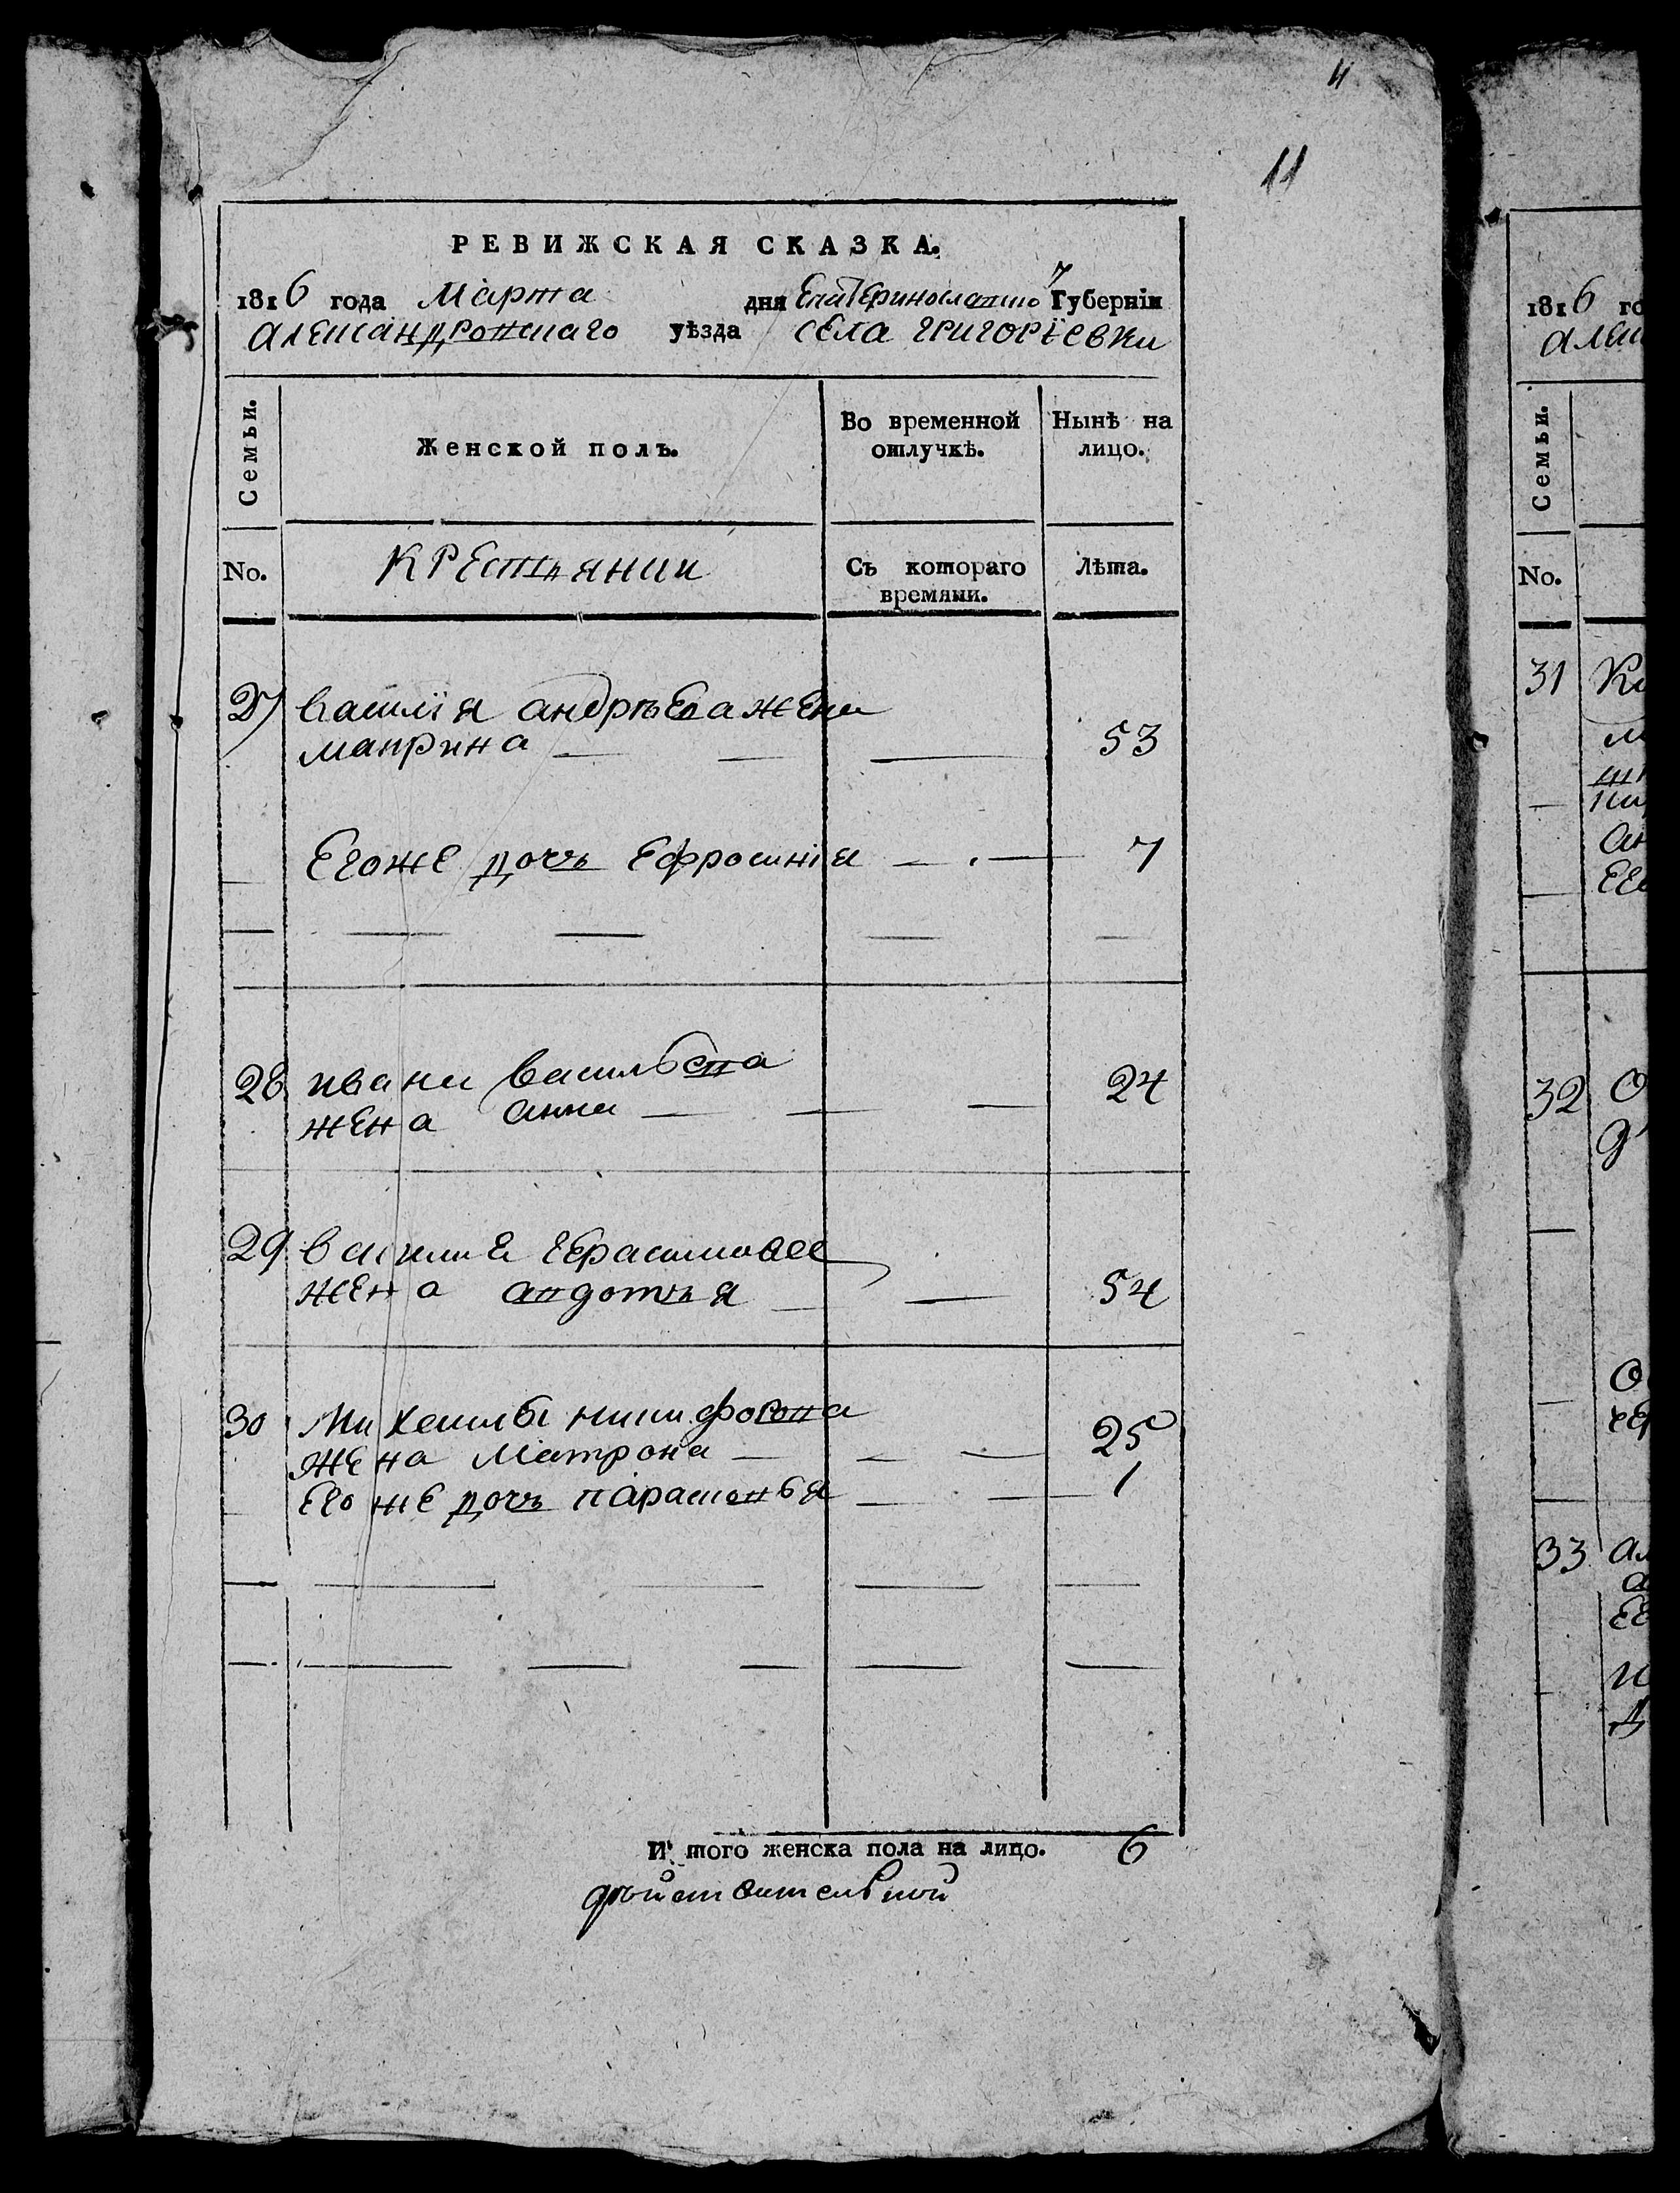 11
11
РЕВИЖСКАЯ СКАЗКА.
1816 года Марта дня Екатеринославско 7 Губернїи
александровскаго уѣзда села григорїевки
Семьи. Женской полъ. Во временной отлучкѣ. Нынѣ на лицо.
No. крестьянии Съ котораго времяни. Лѣта.
27 василїя андрѣева жена
маврина — — — 53
егоже дочь ефросинїя — . — 7
28 ивана васильева 24
жена анна — — —
29 василия герасимова
жена авдотья — — 54
30 михайлы никифорова 25
жена матрона — — —
его же дочь парасковья — — 1
И того женска пола на лицо. 6
дѣйствительной
1816 го
алек
Семьи.
No.
31
32
33